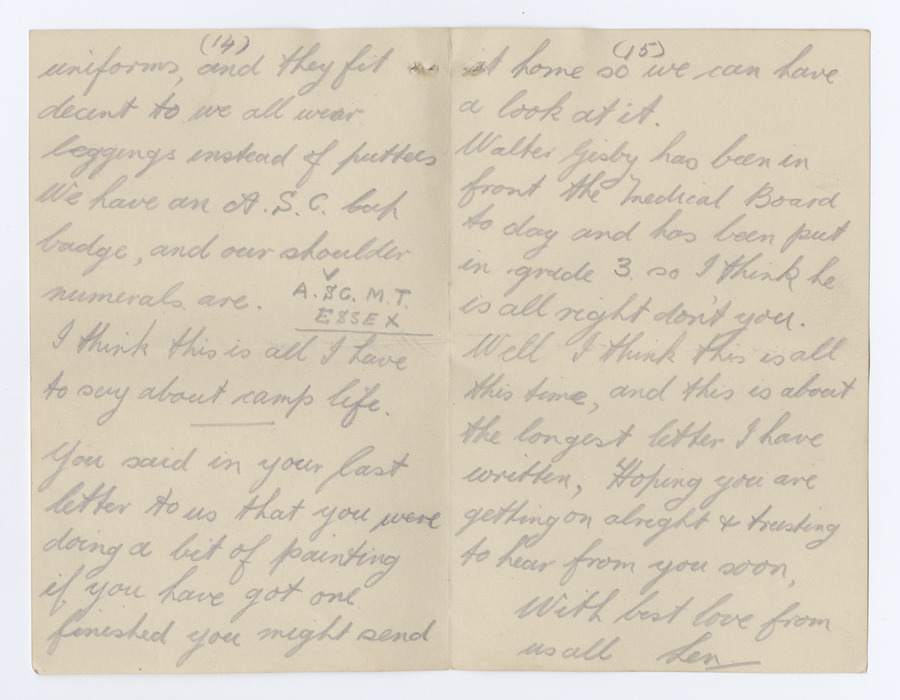 (14)
uniforms, and they fit
decent to we all wear
leggings instead of puttees
We have an A.S.C. cap
badge, and our shoulder
numerals are. A.S.C. M.T.
ESSEX
I think this is all I have
to say about camp life.
You said in your last
letter to us that you were
doing a bit of painting
if you have got one
finished you might send
(15)
it home so we can have
a look at it.
Walter Gisby has been in
front the Medical Board
to day and has been put
in grade 3 so I think he
is all right don't you.
Well I think this is all
this time, and this is about
the longest letter I have
written, Hoping you are
getting on alright & trusting
to hear from you soon,
With best love from
us all Len